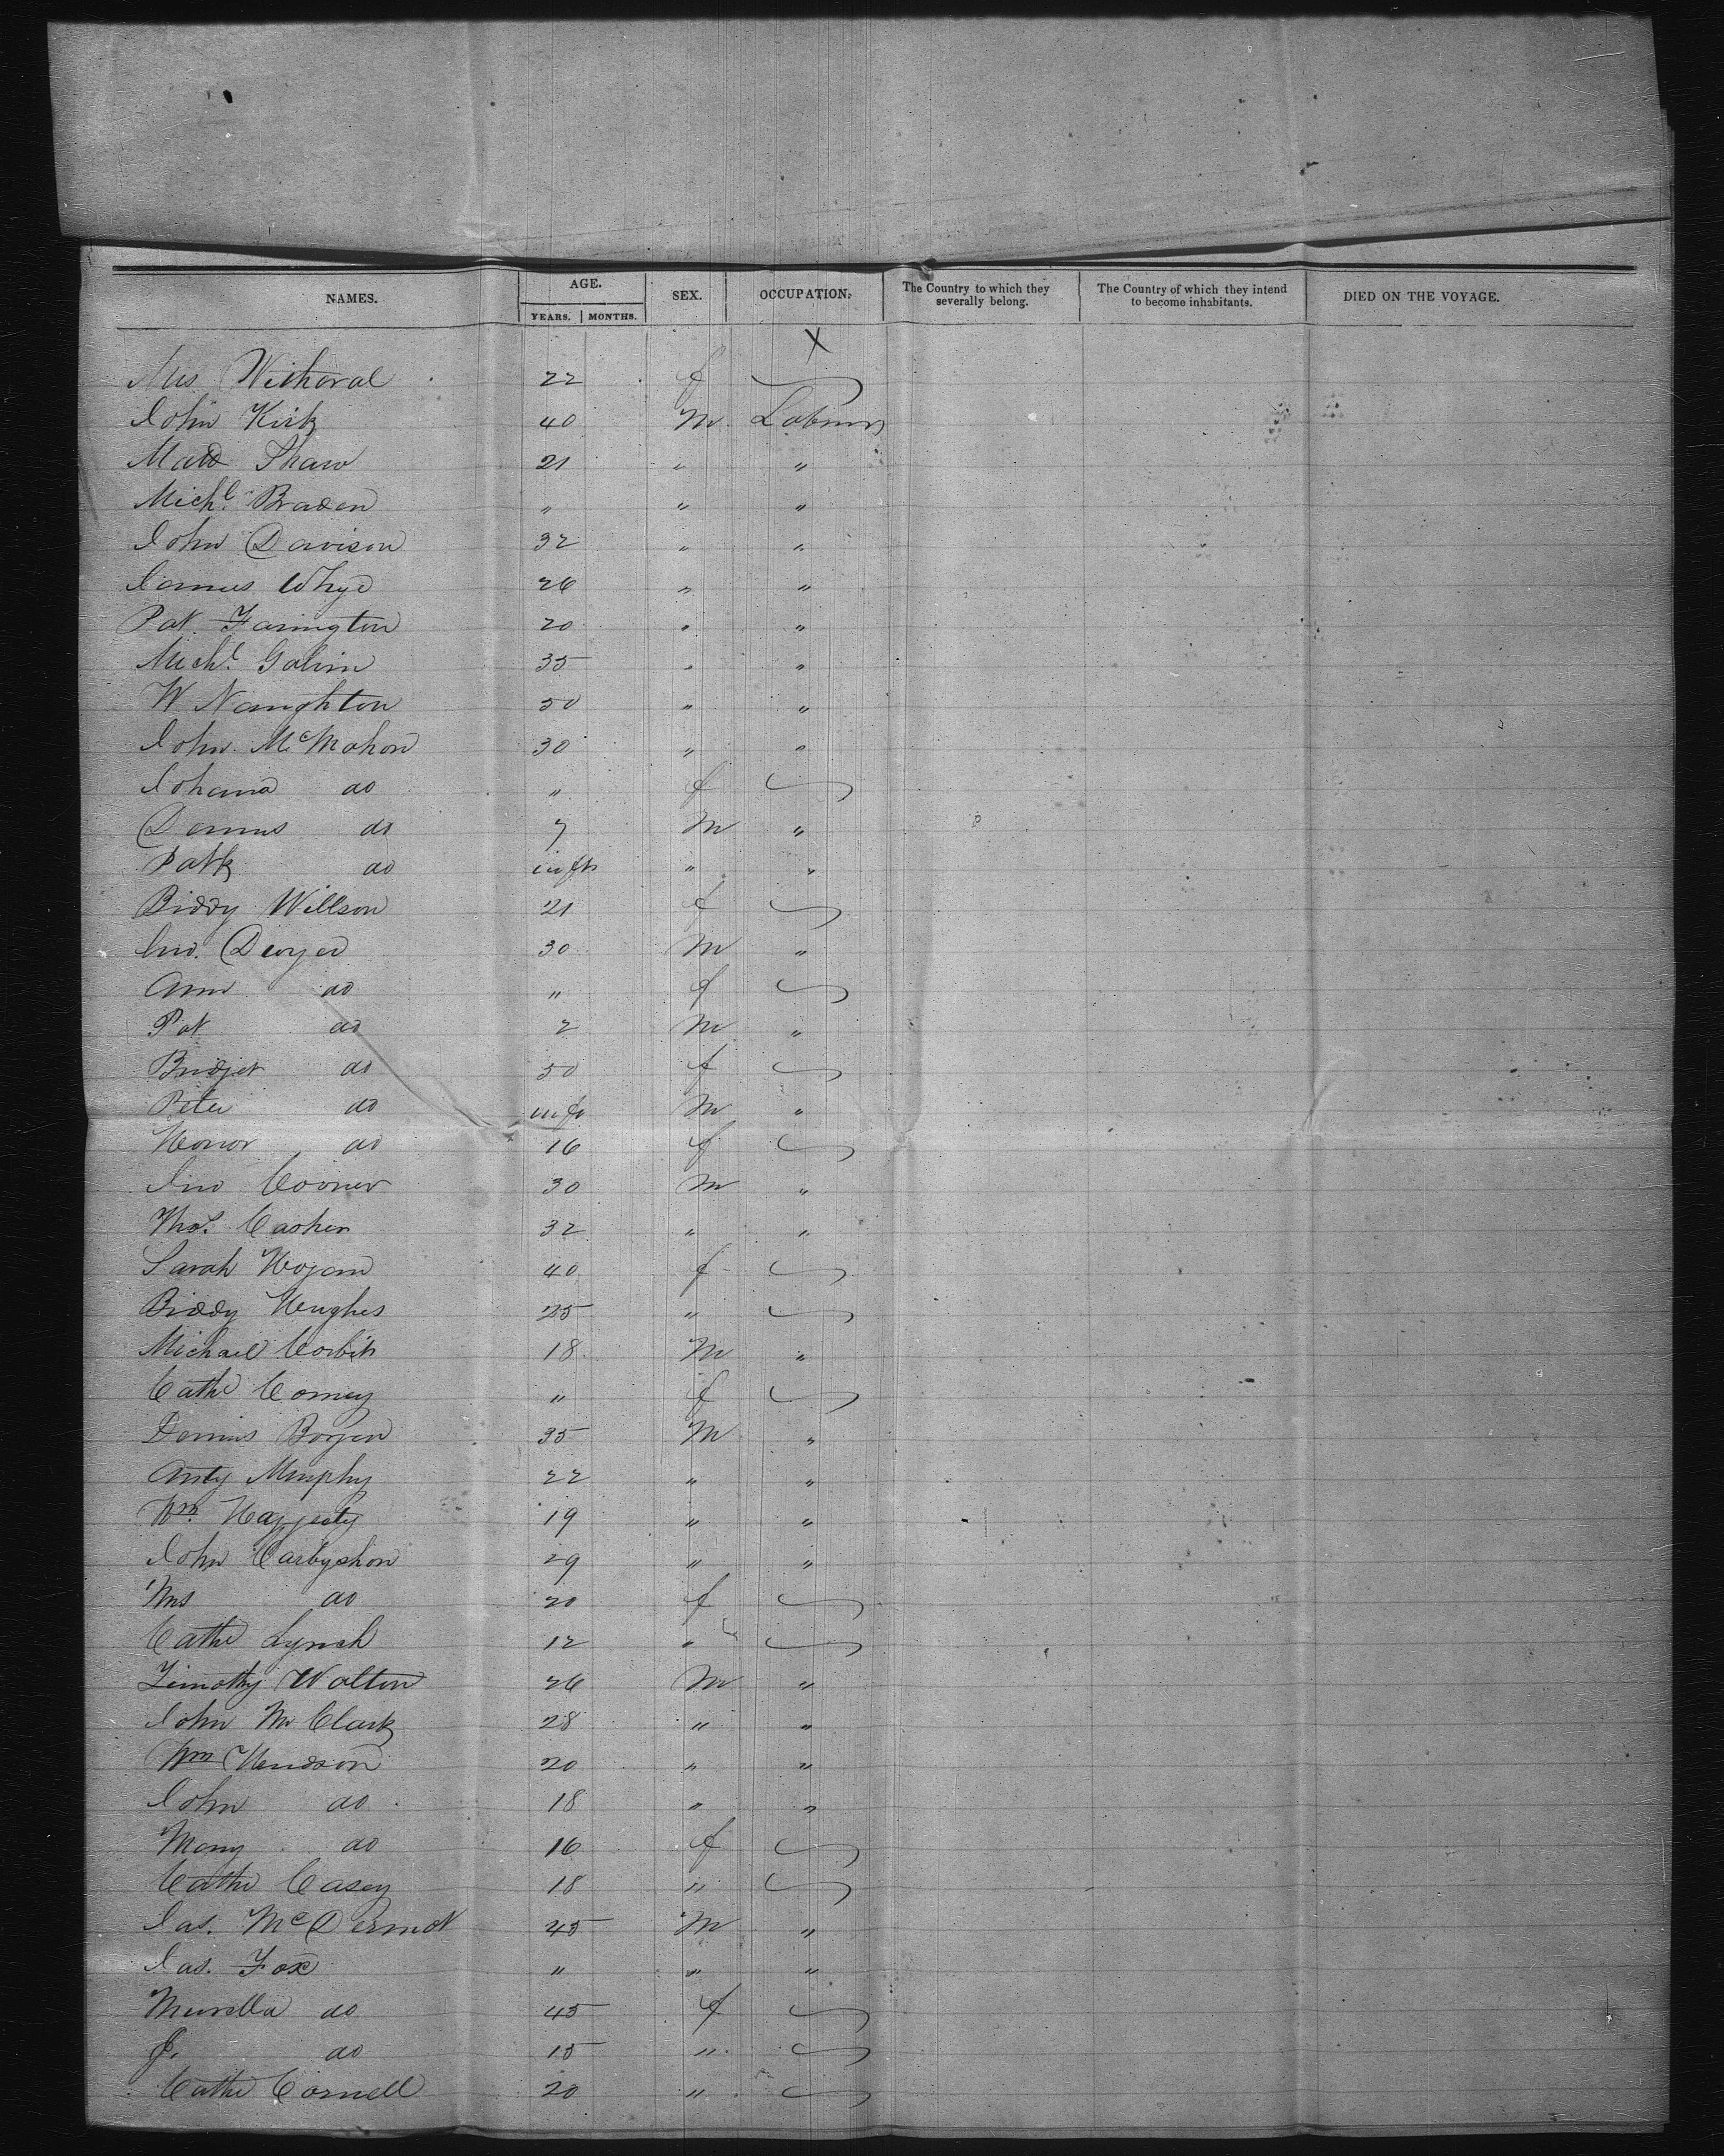 NAMES. AGE. SEX. OCCUPATION. The Country to which they severally belong. The Country of which they intend to become inhabitants. DIED ON THE VOYAGE.
YEARS. MONTHS.
X
Mrs Witheral 22 f
John Kirk 40 M Labourer
Shaw 21 " "
Michl Braden " " "
John Davison 32 " "
James Whye 26 " "
Pat Farington 20 " "
Michl Galvin 35 " "
W Naughton 50 " "
John McMahon 30 " "
Johana do " f
Dennis do 7 M "
Patk do inft " "
Biddy Willson 21 f
Jno. Dwyer 30 M "
Ann do " f
Pat do 2 M "
Bridget do 50 f
Peter do inft M "
Honor do 16 f
Jno Connor 30 M "
Thos. Cashen 32 " "
Sarah Hogan 40 f
Biddy Hughes 25 "
Michael Corbit 18 M "
Cathe Comey " f
Dennis 35 M "
Anty Murphy 22 " "
Wm. Haggerty 19 " "
John Carbyshon 29 " "
Mrs do 20 f
Cathe Lynch 12 "
Timothy Walton 26 M "
John M Clark 28 " "
Wm Hendson 20 " "
John do 18 " "
Mary do 16 f
Cathe Casey 18 "
Jas. McDermot 45 M "
Jas. Fox " " "
do 45 f
J. do 15 "
Cathe Cornell 20 "